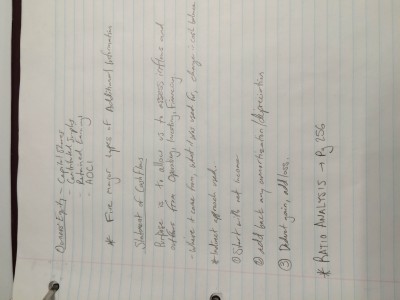 Owners Equity - Capital Shares
- Contributed Surplus
- Retained Earnings
- AOCI
* Five major types of Additional Information
Statement of Cashflows
Purpose is to allow us to assess inflows and
outflows from Operating, Investing, Financing
- Where it came from, what it was used for, change in cash balance
* Indirect approach used.
① Start with net income
② add back any amortization/depreciation
③ Deduct gain, add loss.
* RATIO ANALYSIS → Pg 256